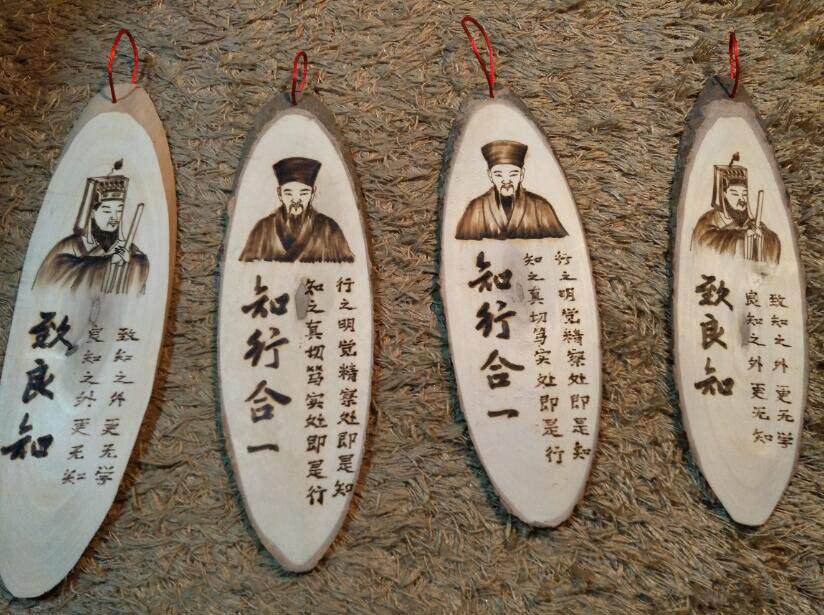 致良知
良知之外更无知
致知之外更无学
知行合一
知之真切笃实处即是行
行之明觉精察处即是知
知行合一
知之真切笃实处即是行
行之明觉精察处即是知
致良知
良知之外更无知
致知之外更无学